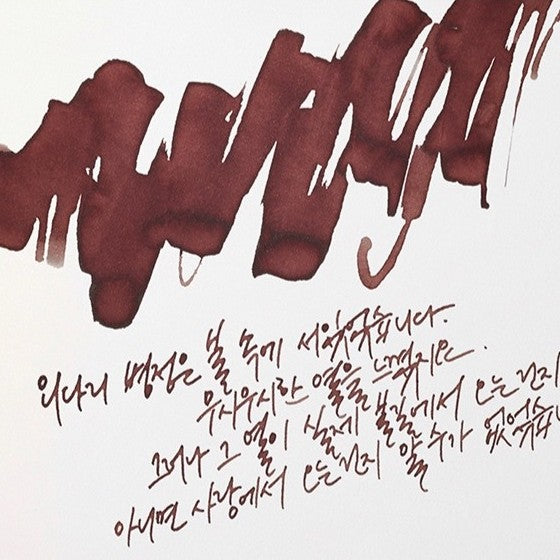 외다리 병정은 불 속에 서있었습니다.
무시무시한 열을 느꼈지요.
그러나 그 열이 실제 불길에서 오는건지
아니면 사랑에서 오는건지 알 수가 없었습